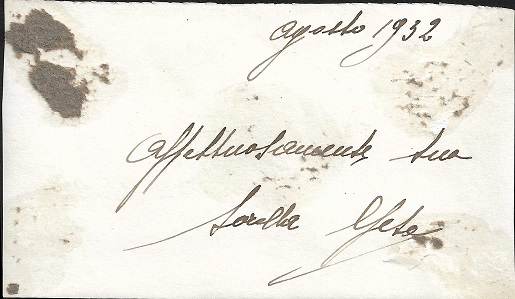 agosto 1932
Affettuosamente tua
sorella